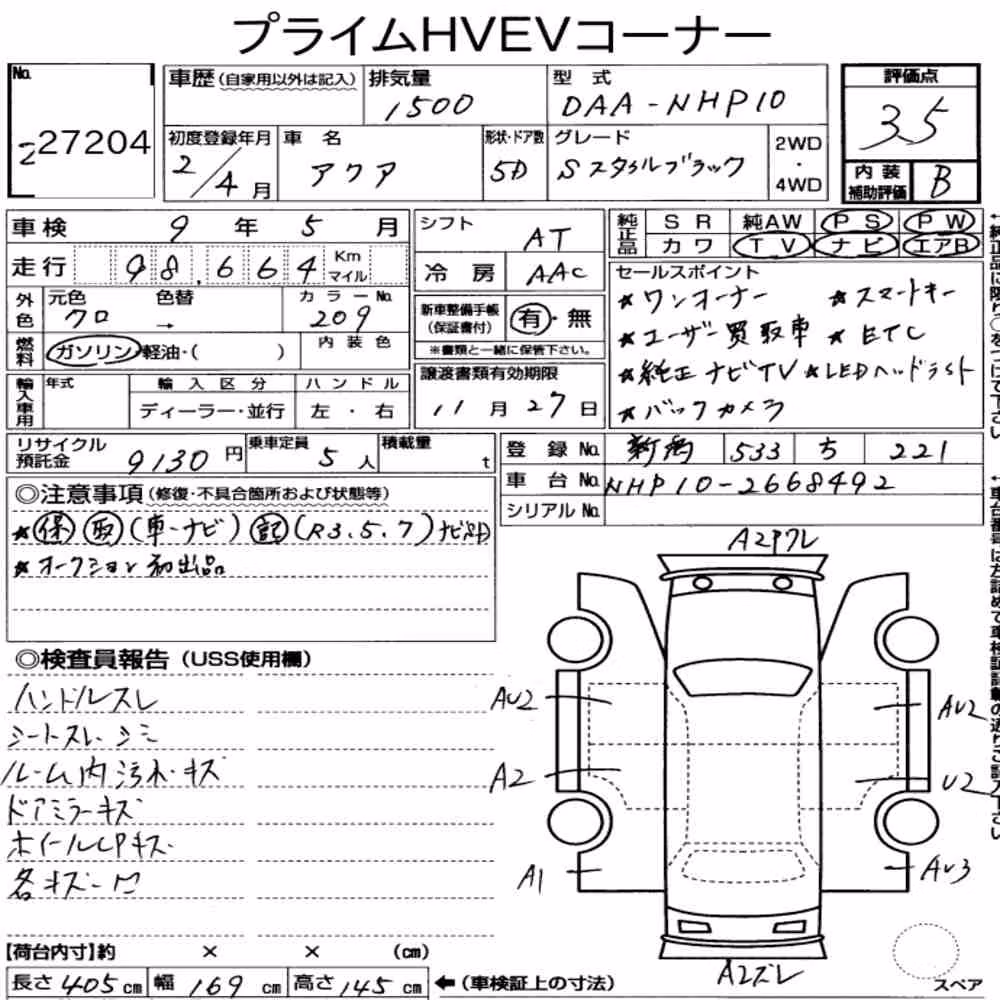 プライムHVEVコーナー
No. 227204
車歴 (自家用以外は記入)
排気量 1500
型式 DAA-NHP10
評価点 3.5
初度登録年月 2/4月
車名 アクア
形状・ドア数 5D
グレード Sスタイルブラック
2WD・4WD
内装補助評価 B
車検 9年5月
シフト AT
純正品 SR 純AW PS PW
カワ TV ナビ エアB
走行 98,664 Km マイル
冷房 AAC
セールスポイント
★ワンオーナー ★スマートキー
★ユーザー買取車 ★ETC
★純正ナビTV ★LEDヘッドライト
★バックカメラ
外色 元色 クロ 色替 → カラーNo. 209
新車整備手帳(保証書付) 有・無
※書類と一緒に保管下さい。
燃料 ガソリン・軽油・( ) 内装色
輸入車用 年式 輸入区分 ハンドル
ディーラー・並行 左・右
譲渡書類有効期限
11月27日
リサイクル預託金 9130円
乗車定員 5人
積載量 t
登録No. 新潟 533 ち 221
車台No. NHP10-2668492
シリアルNo.
◎注意事項 (修復・不具合箇所および状態等)
★保 取 (車・ナビ) 記 (R3.5.7) ナビ
★オークション初出品
◎検査員報告 (USS使用欄)
ハンドルスレ
シートスレ・シミ
ルーム内汚れ・キズ
ドアミラーキズ
ホイールCPキズ
各キズ・凹
A2アクレ
AU2
AU2
A2
U2
A1
AU3
A2ズレ
スペア
【荷台内寸】約 × × (cm)
長さ 405 cm 幅 169 cm 高さ 145 cm
←(車検証上の寸法)